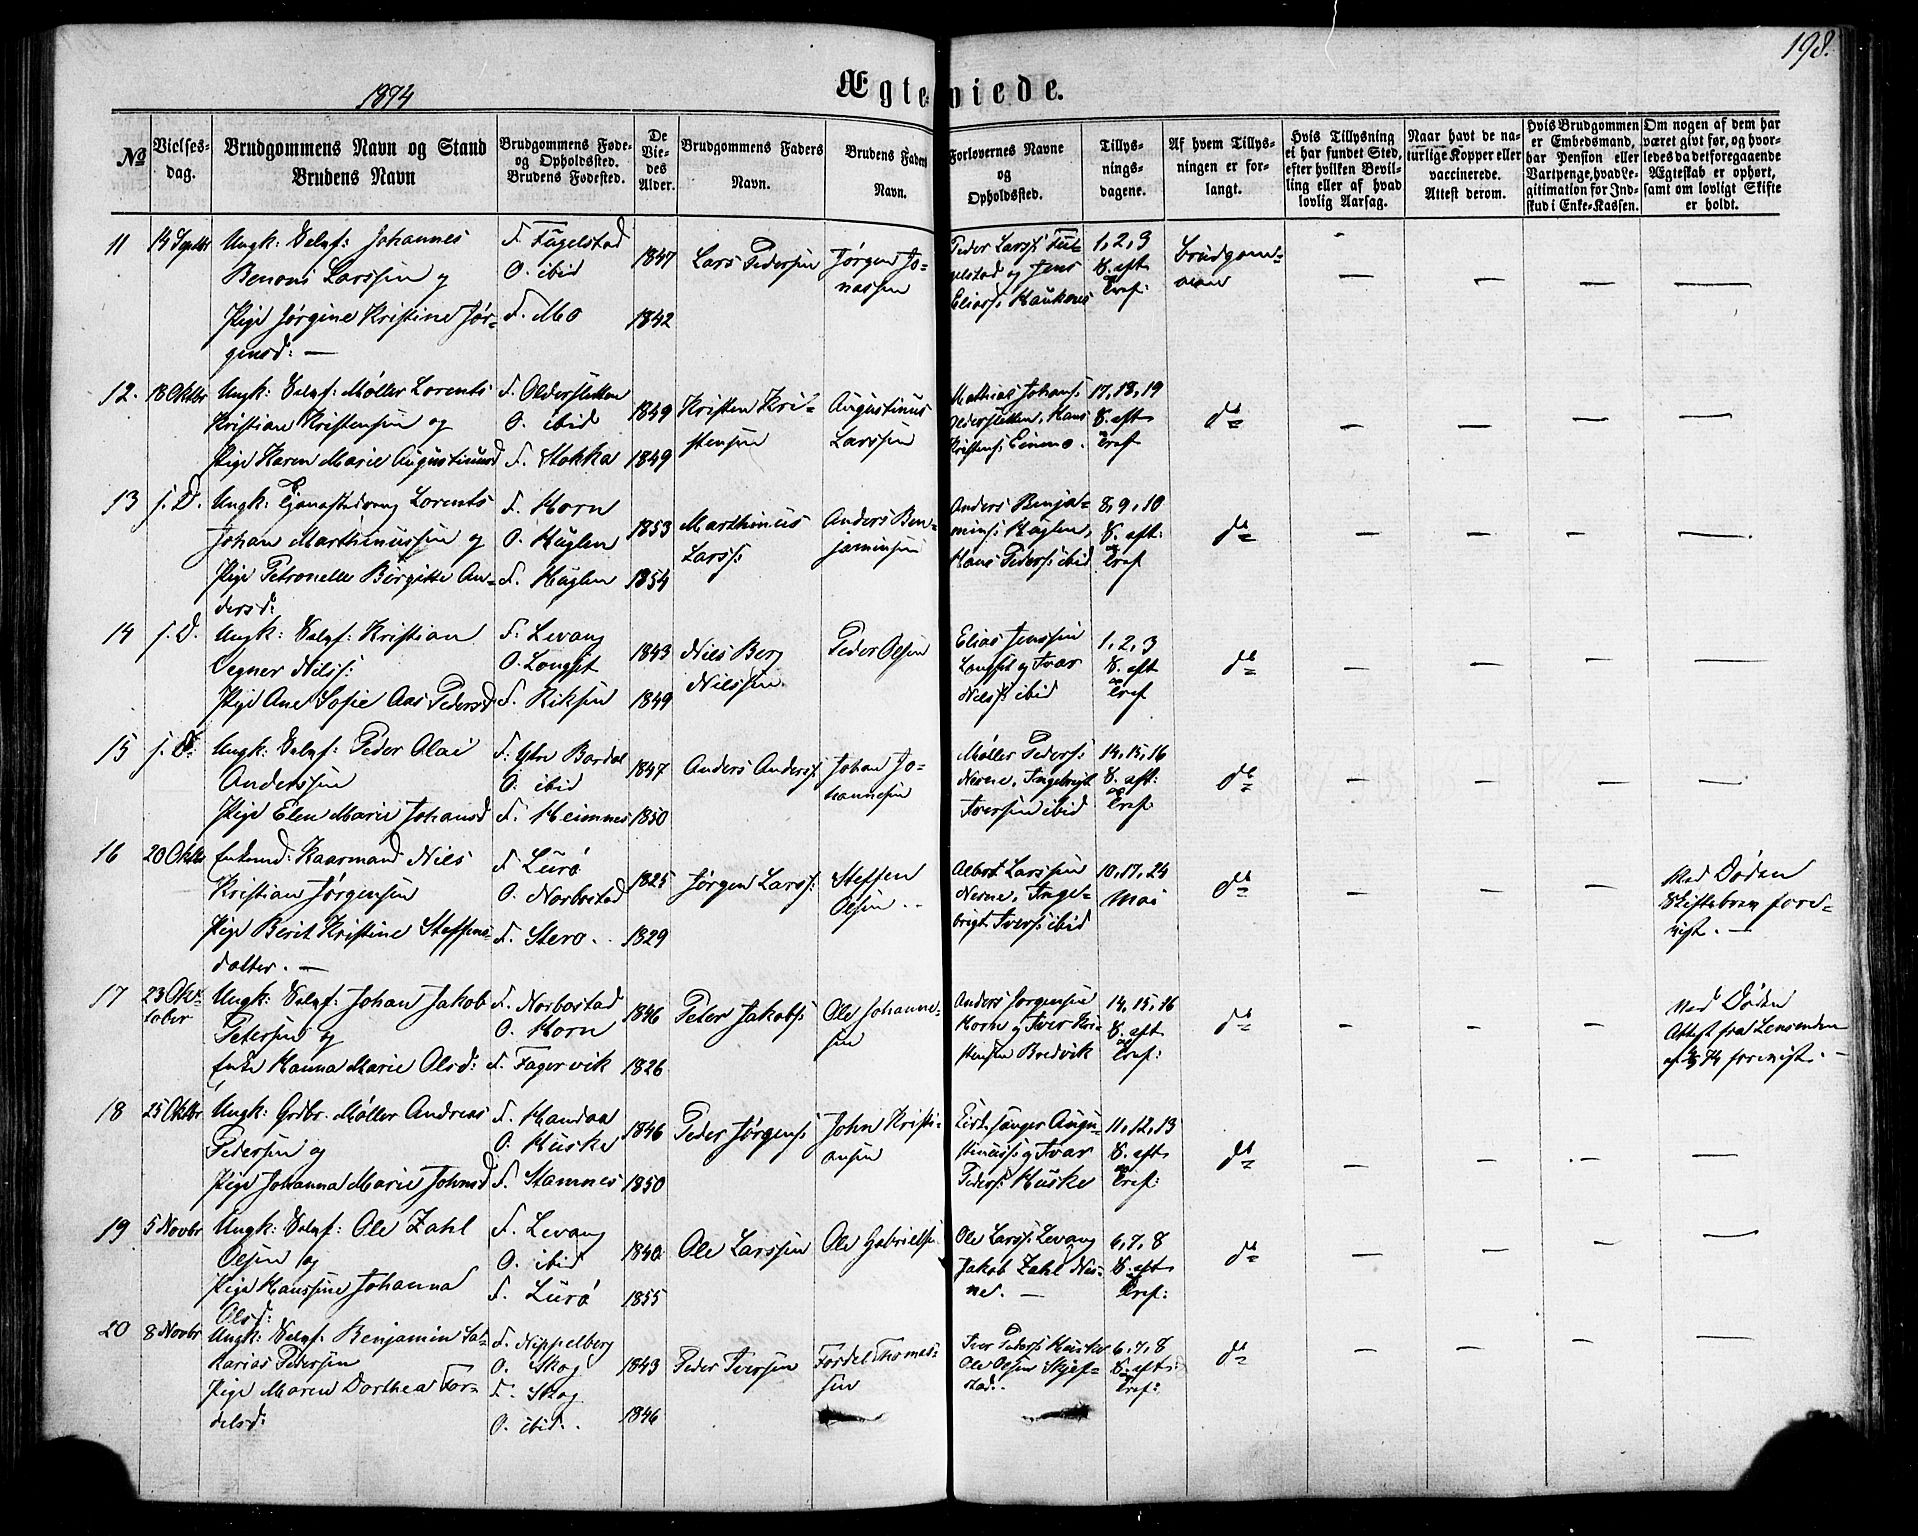 198.
1874
Ægteviede.
No
Vielses-
dag.
Brudgommens Navn og Stand
Brudens Navn
Brudgommens Føde-
og Opholdssted.
Brudens Fødested.
De
Vie-
des
Alder.
Brudgommens Faders
Navn.
Brudens Faders
Navn.
Forlovernes Navne
og
Opholdssted.
Tillys-
nings-
dagene.
Af hvem Tillys-
ningen er for-
langt.
Hvis Tillysning
ei har fundet Sted,
efter hvilken Bevil-
ling eller af hvad
lovlig Aarsag.
Naar havt de na-
turlige Kopper eller
vaccinerede.
Attest derom.
Hvis Brudgommen
er Embedsmand,
har Pension eller
Vartpenge, hvad Le-
gitimation for Ind-
skud i Enke-Kassen.
Om nogen af dem har
været givt før, og hvor-
ledes da det foregaaende
Ægteskab er ophørt,
samt om lovligt Skifte
er holdt.
11
Ungk: Johannes
Benoni Larssen og
Pige Jørgine Kristine Jør-
gensd: —
F.
O. ibid
F. Mo
1847
1842
Lars Pedersen
Jørgen Jo-
nassen
Peder Larss:
og Jens
Eliass:
1, 2, 3
Brudgom-
men
12. 18 Oktbr
Ungk: Møller Lorents
Kristian Kristensen og
Pige Karen Marie Augustinusd
F. Oldersletten
O. ibid
F. Stokka
1849
1849
Kristen Kri-
stensen
Augustinus
Larssen
Mathias Johans:
Oldersletten, Hans
Kristens:
17, 18, 19
13 s. D.
Ungk: Lorents
Johan Marthinussen og
Pige Petronelle Birgitte An-
dersd:
F. Horn
O. Huglen
F. Huglen
1853
1854
Marthinus
Larss:
Anders Ben-
jaminsen
Anders Benja-
mins: Huglen,
Hans Peders: ibid
8, 9, 10
14 s. D.
Ungk: Kristian
Vegner Nilss:
Pige Ane Sofie Aas Pedersd
F. Levang
O. Langset
F.
1843
1849
Nils Berg
Nilssen
Peder Olsen
Elias Jenssen
og Ivar
Nilss: ibid
1, 2, 3
15 s. D.
Ungk: Peder Olai
Anderssen
Pige Elen Marie Johansd
F. Ytre Bardal
O. ibid
F. Heimnes
1847
1850
Anders Anderss:
Johan Jo-
hannesen
Møller Peders:
Nesne, Ingebrigt
Iverssen ibid
14, 15, 16
16 20 Oktbr
Enkemd: Kaarmand Nils
Kristian Jørgensen
Pige Berit Kristine Steffens-
datter. —
F. Lurø
O. Norbostad
F.
1825
1829
Jørgen Larss:
Steffen
Olsen
Albert Larssen
Nesne, Inge-
brigt Iverss: ibid
10, 17, 24
Mai
Ved Døden
Skiftebrev fore-
vist. —
17 23 Ok-
tober
Ungk: Johan Jakob
Petersen og
Enke Hanna Marie Olsd:
F. Norbostad
O. Horn
F. Fagervik
1846
1826
Peter Jakobs:
Ole Johanne-
sen
Anders Jørgensen
Horn og Iver Kri-
stensen Bredvik
14, 15, 16
Ved Døden
Attest fra Lensmanden
forevist. —
18 25 Oktbr
Ungk: Grdbr. Møller Andreas
Pedersen og
Pige Johanna Marie Johnsd
F.
O. Huske
F. Stamnes
1846
1850
Peder Jørgens:
John Kristi-
ansen
Kirkesanger Augu-
og Ivar
Peders: Huske
11, 12, 13
19 5 Novbr
Ungk: Ole Zahl
Olsen og
Pige Hanssine Johanna
Olsd:
F. Levang
O. ibid
F. Lurø
1840
1855
Ole Larssen
Ole Gabriels:
Ole Larss: Levang
Jakob Zahl Nes-
ne. —
6, 7, 8
20 8 Novbr
Ungk: Benjamin Sa-
karias Petersen
Pige Maren Dorthea For-
delsd:
F. Nippelberg
O. Skog
F. Skog
O. ibid.
1843
1846
Peder Iversen
Fordel Thomas-
sen
Iver Peders: Huske
Ole Olsen
6, 7, 8